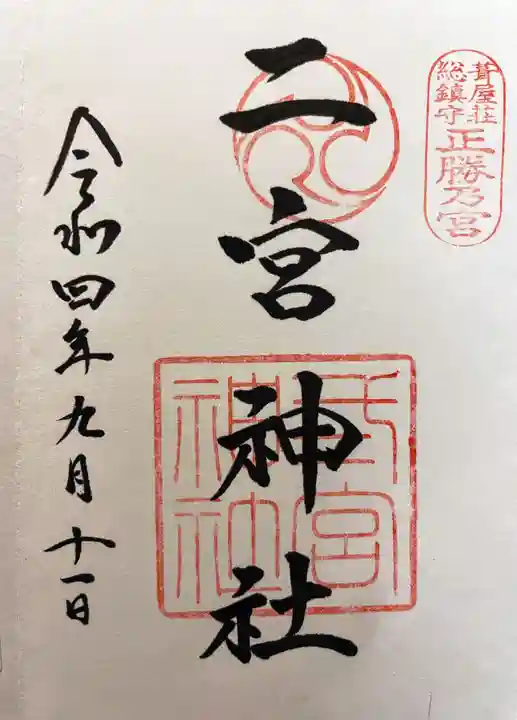 葺屋荘
総鎮守
正勝乃宮
二宮神社
二宮神社
令和四年九月十一日